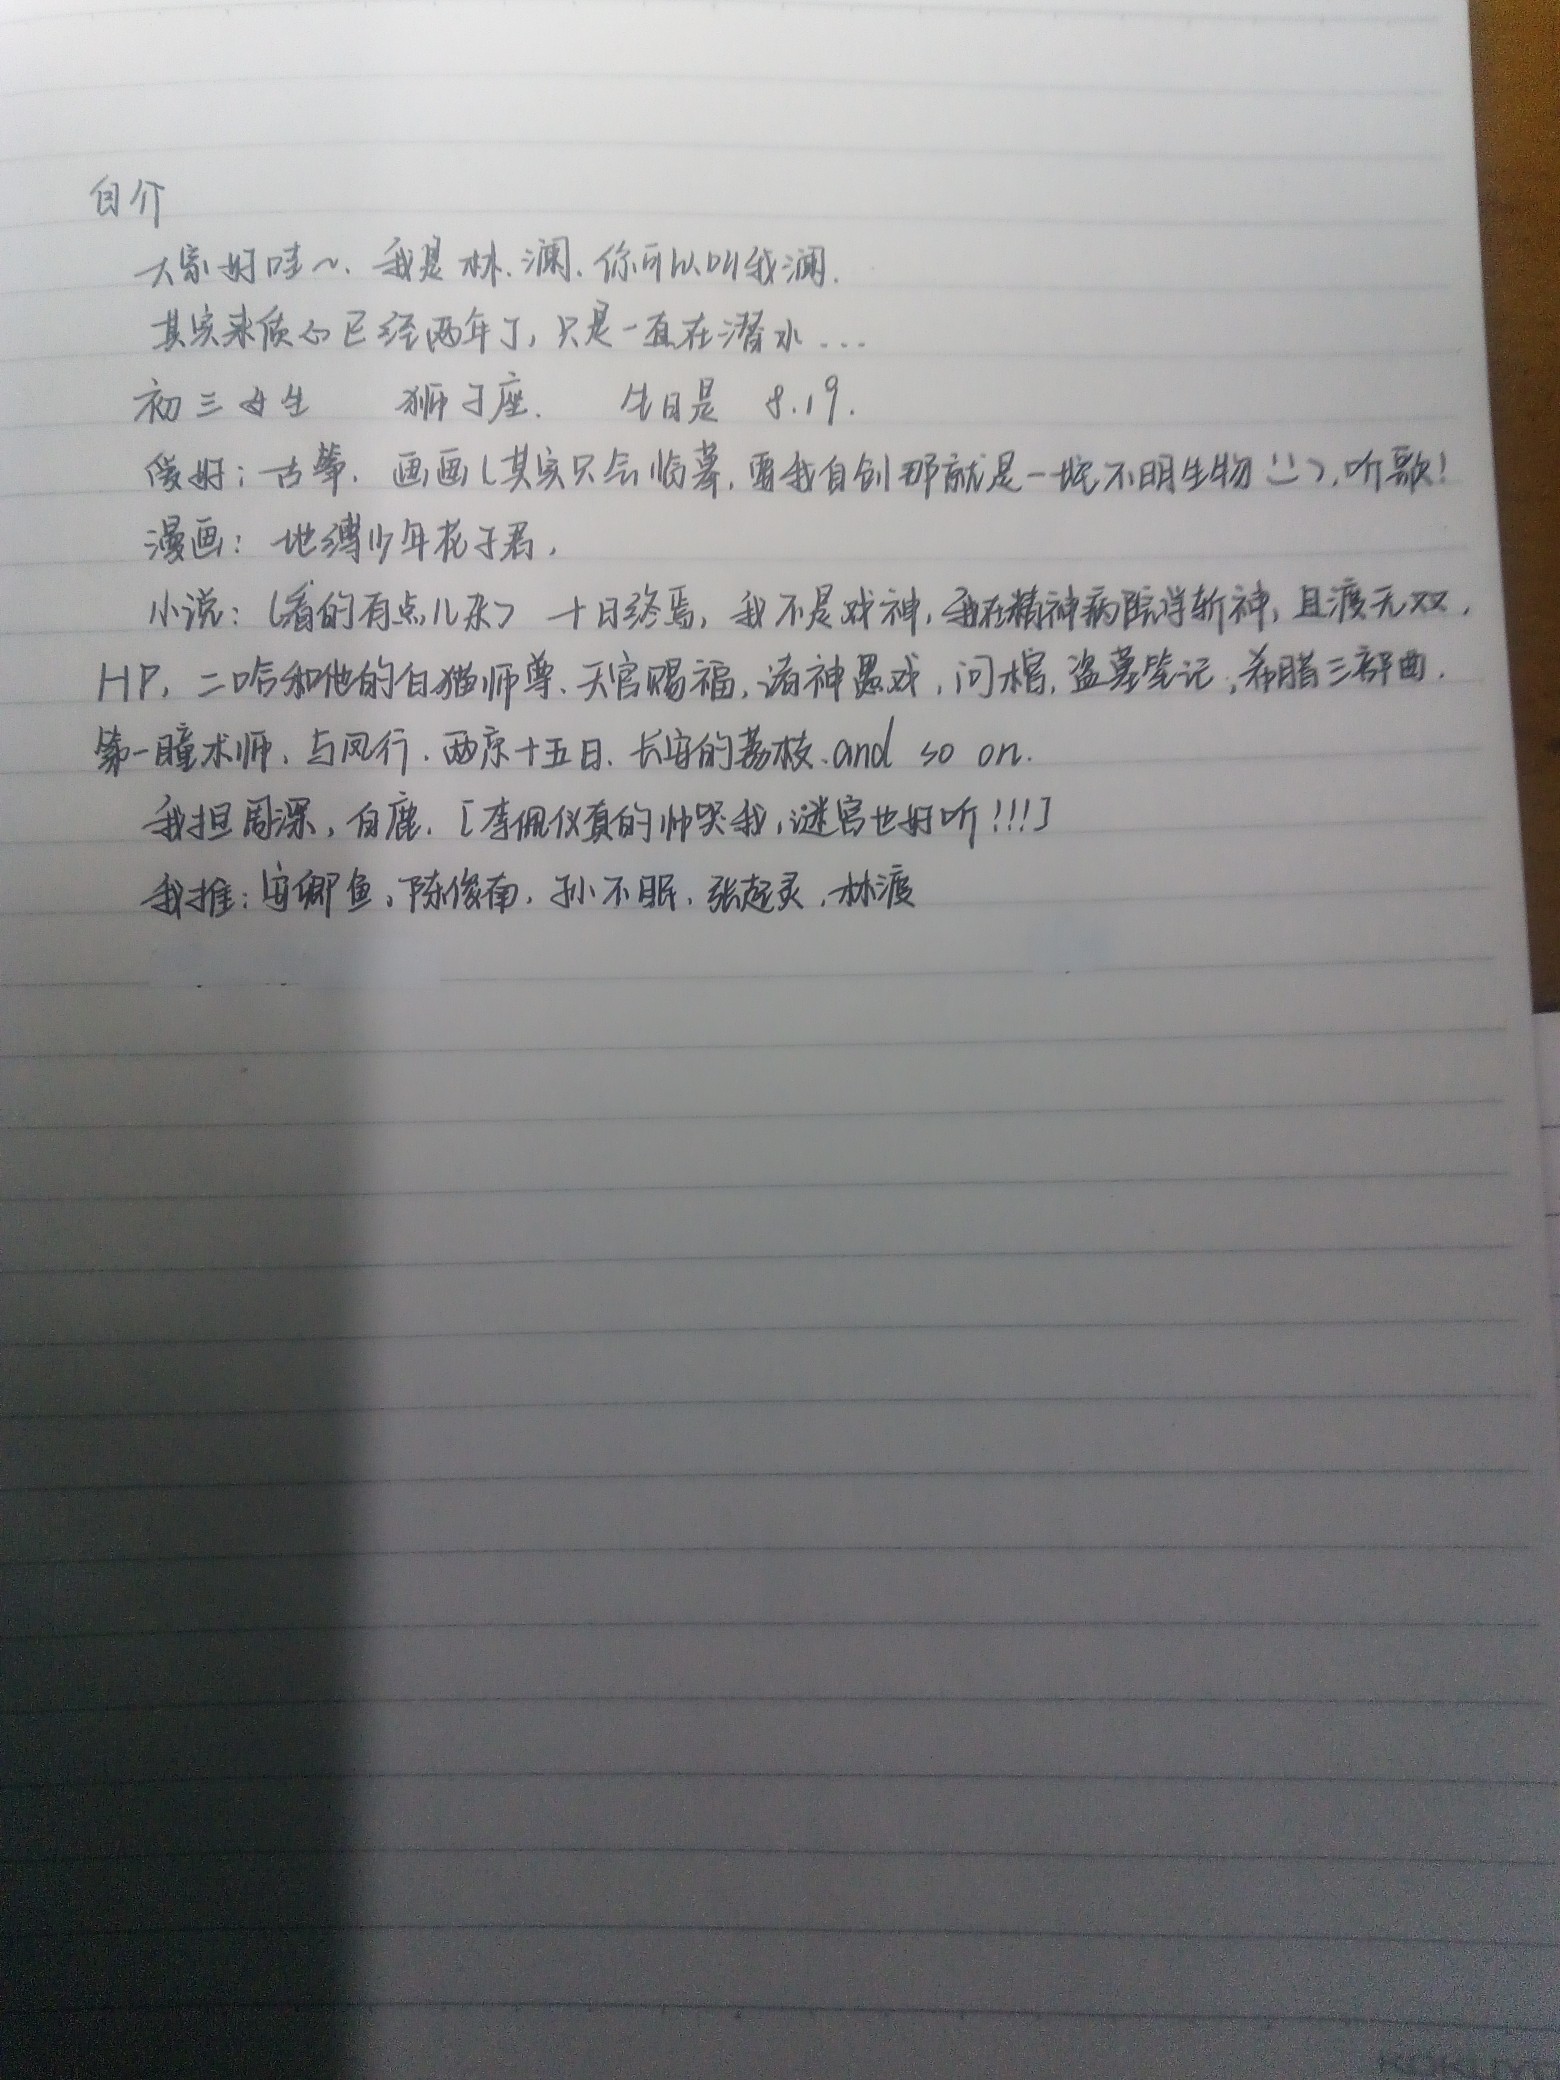 自介
大家好哇~、我是林澜、你可以叫我澜.
其实来质心已经两年了,只是一直在潜水...
初三女生 狮子座. 生日是 8.19.
爱好:古筝、画画(其实只会临摹,要我自创那就是一坨不明生物),听歌!
漫画:地缚少年花子君,
小说:(看的有点儿杂) 十日终焉,我不是戏神,我在精神病院学斩神,且渡无双,
HP,二哈和他的白猫师尊、天官赐福,诸神愚戏,问棺,盗墓笔记,希腊三部曲.
第一瞳术师、与凤行.两京十五日、长安的荔枝、and so on.
我担周深,白鹿.[李佩仪真的帅哭我,谜宫也好听!!!]
我推:安卿鱼、陈俊南,孙不眠,张起灵,林渡
KOKUYO